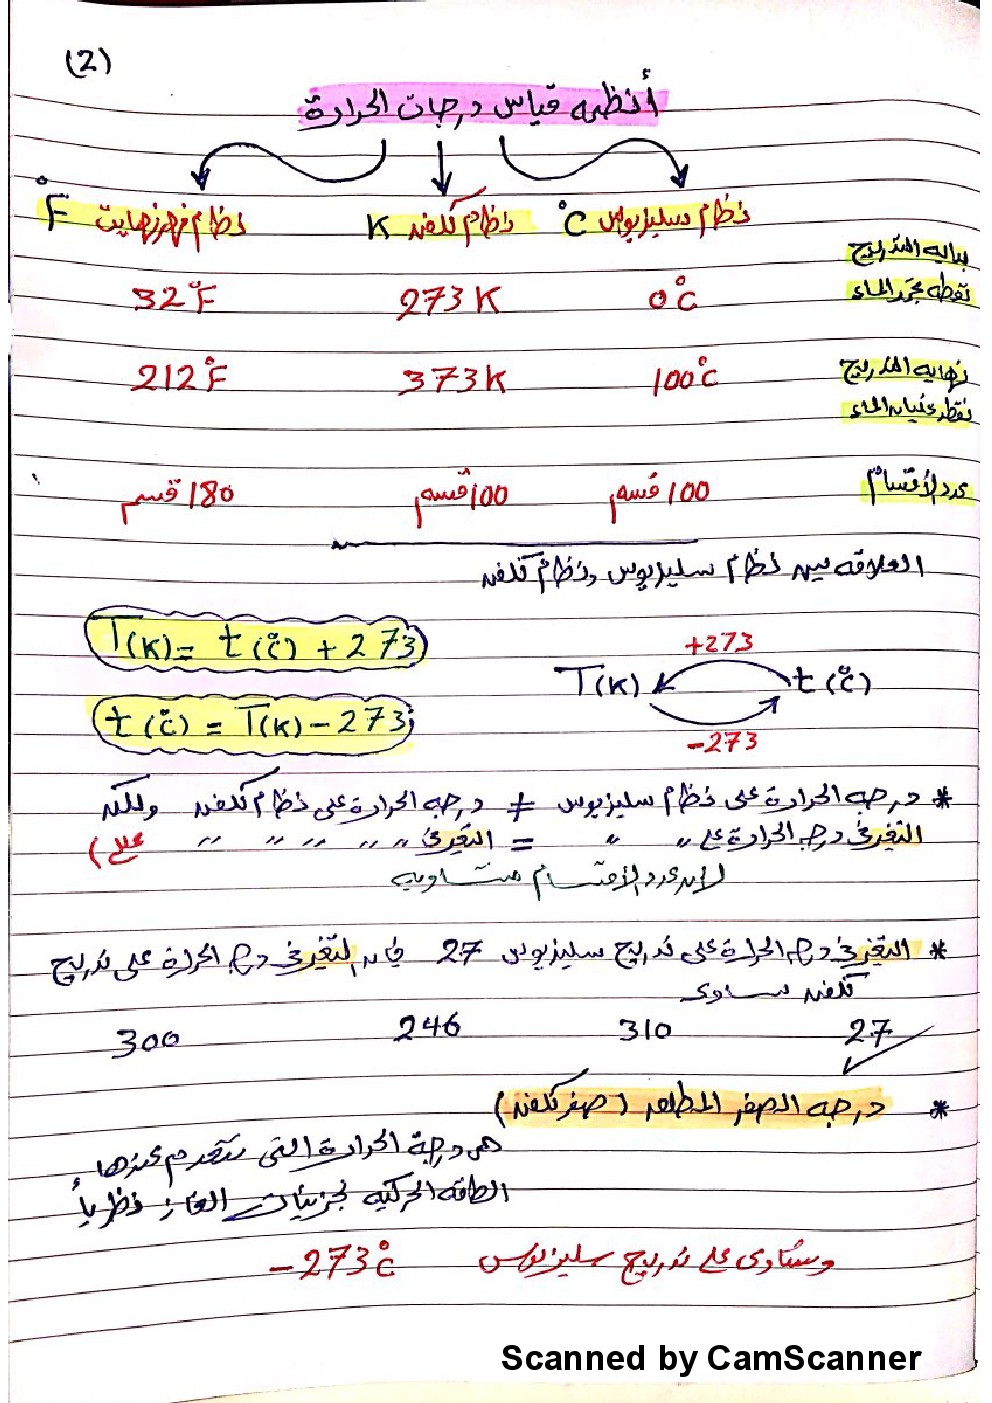 (2)
أنظمه قياس درجات الحرارة
نظام سليزيوس °C نظام كلفن K نظام فهرنهايت °F
بدايه التدريج
نقطه تجمد الماء 0°C 273 K 32°F
نهايه التدريج 100°C 373 K 212°F
نقطه غليان الماء
عدد الأقسام 100 قسم 100 قسم 180 قسم
العلاقه بين نظام سليزيوس ونظام كلفن
T(K) = t(°C) + 273
+273
T(K) t(°C)
t(°C) = T(K) - 273
-273
* درجه الحرارة على نظام سليزيوس ≠ درجه الحرارة على نظام كلفن ولكن
التغير فى درجه الحرارة على " " = التغير فى " " " " " " (علل)
لان عدد الأقسام متساويه
* التغير فى درجه الحرارة على تدريج سليزيوس 27 فان التغير فى درجه الحرارة على تدريج
كلفن يساوى
27 310 246 300
* درجه الصفر المطلق (صفر كلفن)
هى درجة الحرارة التى تنعدم عندها
الطاقه الحركيه لجزيئات الغاز نظرياً
وتساوى على تدريج سليزيوس -273°C
Scanned by CamScanner